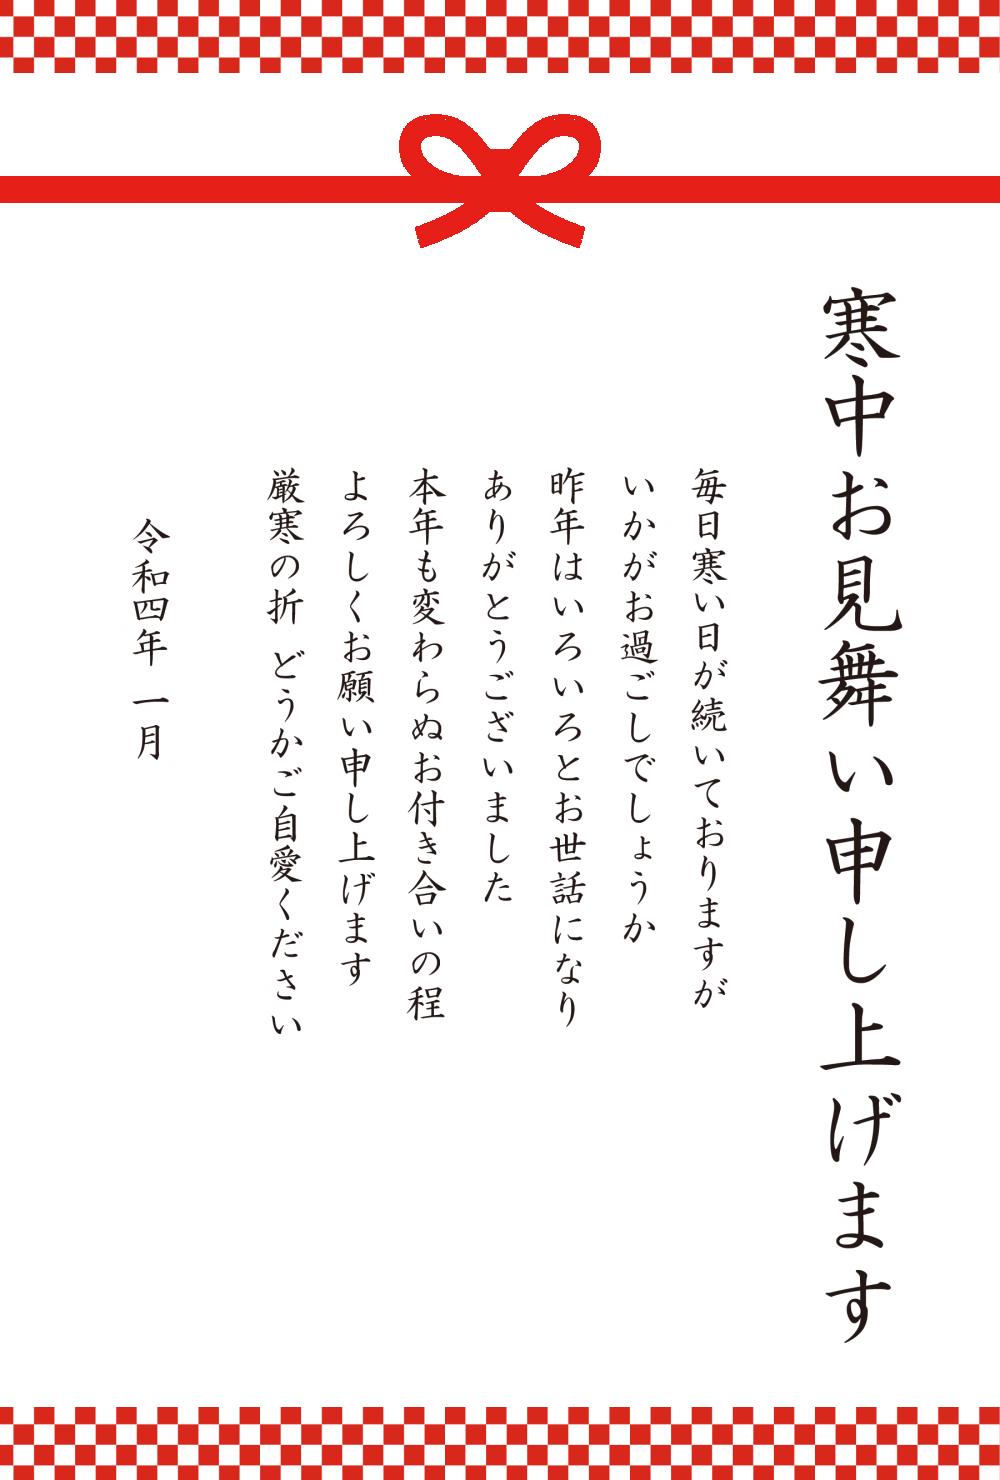 寒中お見舞い申し上げます
毎日寒い日が続いておりますが
いかがお過ごしでしょうか
昨年はいろいろとお世話になり
ありがとうございました
本年も変わらぬお付き合いの程
よろしくお願い申し上げます
厳寒の折 どうかご自愛ください
令和四年 一月